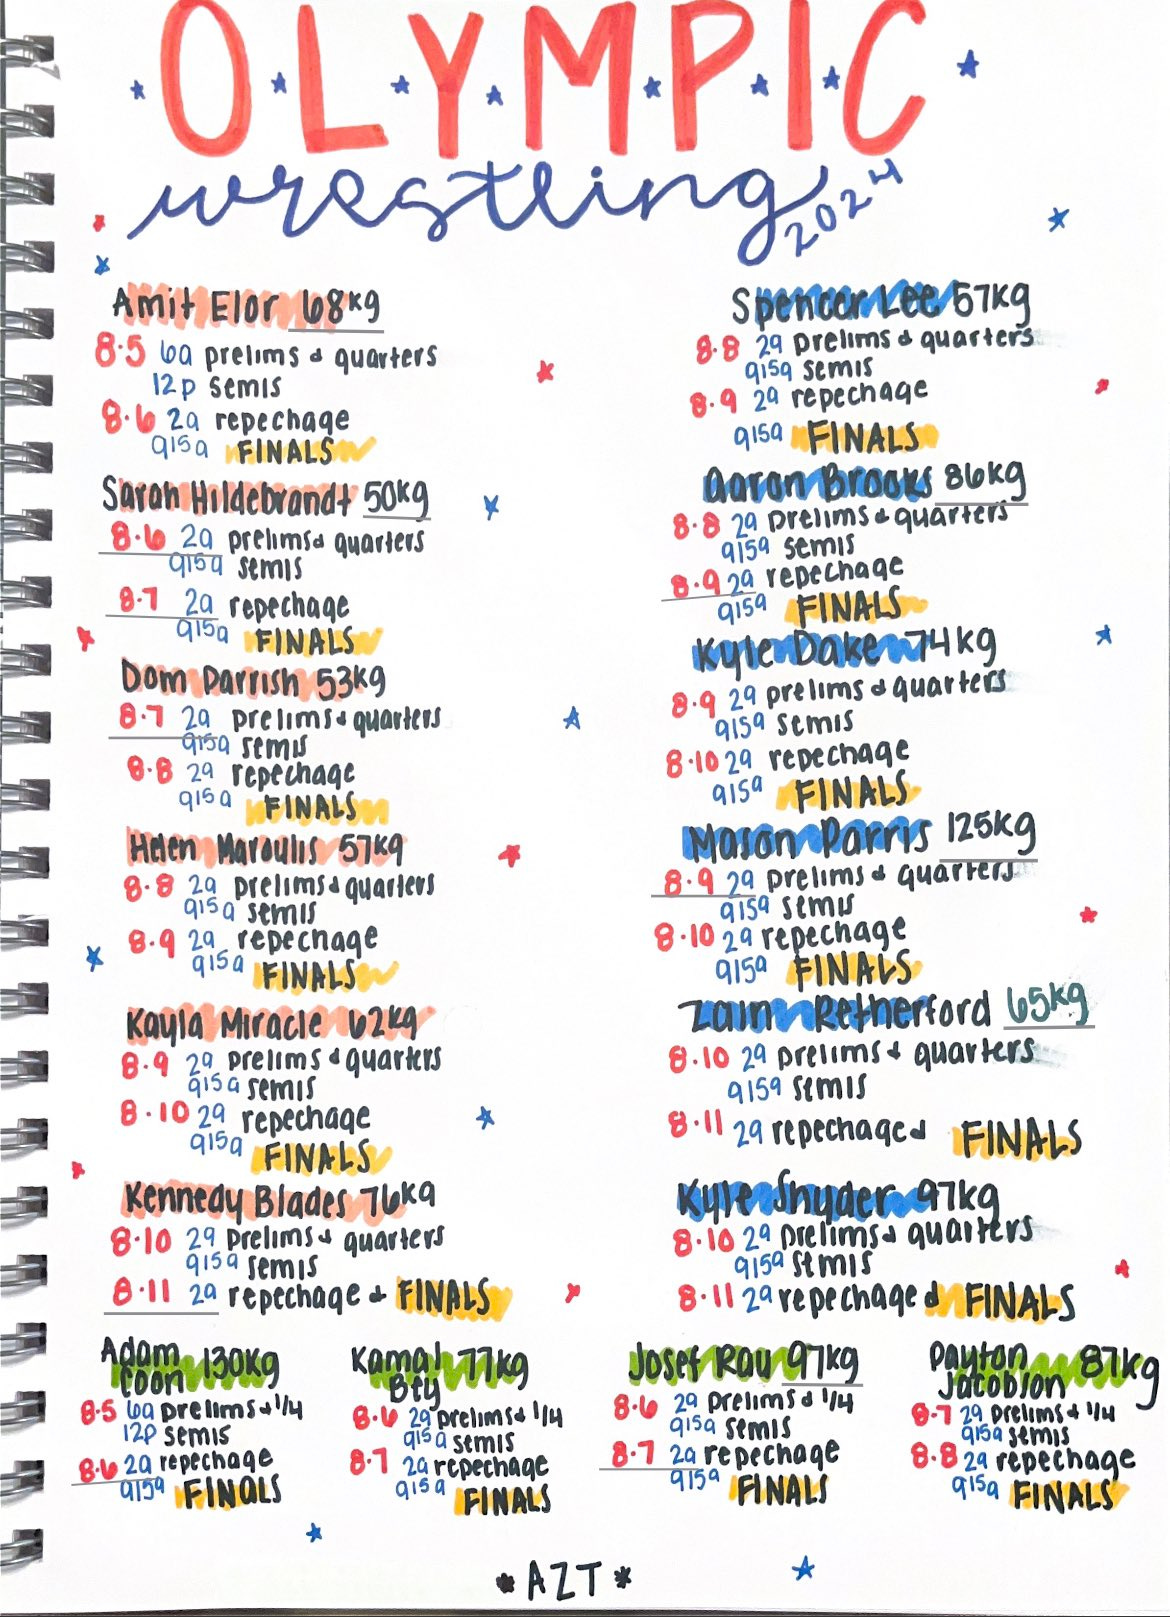 OLYMPIC
wrestling 2024
Amit Elor 68kg
8.5 6a prelims & quarters
12p semis
8.6 2a repechage
915a FINALS
Sarah Hildebrandt 50kg
8.6 2a prelims & quarters
915a semis
8.7 2a repechage
915a FINALS
Dom Parrish 53kg
8.7 2a prelims & quarters
915a semis
8.8 2a repechage
915a FINALS
Helen Maroulis 57kg
8.8 2a prelims & quarters
915a semis
8.9 2a repechage
915a FINALS
Kayla Miracle 62kg
8.9 2a prelims & quarters
915a semis
8.10 2a repechage
915a FINALS
Kennedy Blades 76kg
8.10 2a prelims & quarters
915a semis
8.11 2a repechage & FINALS
Spencer Lee 57kg
8.8 2a prelims & quarters
915a semis
8.9 2a repechage
915a FINALS
Aaron Brooks 86kg
8.8 2a prelims & quarters
915a semis
8.9 2a repechage
915a FINALS
Kyle Dake 74kg
8.9 2a prelims & quarters
915a semis
8.10 2a repechage
915a FINALS
Mason Parris 125kg
8.9 2a prelims & quarters
915a semis
8.10 2a repechage
915a FINALS
Zain Retherford 65kg
8.10 2a prelims & quarters
915a semis
8.11 2a repechage & FINALS
Kyle Snyder 97kg
8.10 2a prelims & quarters
915a semis
8.11 2a repechage & FINALS
Adam Coon 130kg
8.5 6a prelims & 1/4
12p semis
8.6 2a repechage
915a FINALS
Kamal Bey 77kg
8.6 2a prelims & 1/4
915a semis
8.7 2a repechage
915a FINALS
Josef Rau 97kg
8.6 2a prelims & 1/4
915a semis
8.7 2a repechage
915a FINALS
Payton Jacobson 87kg
8.7 2a prelims & 1/4
915a semis
8.8 2a repechage
915a FINALS
*AZT*